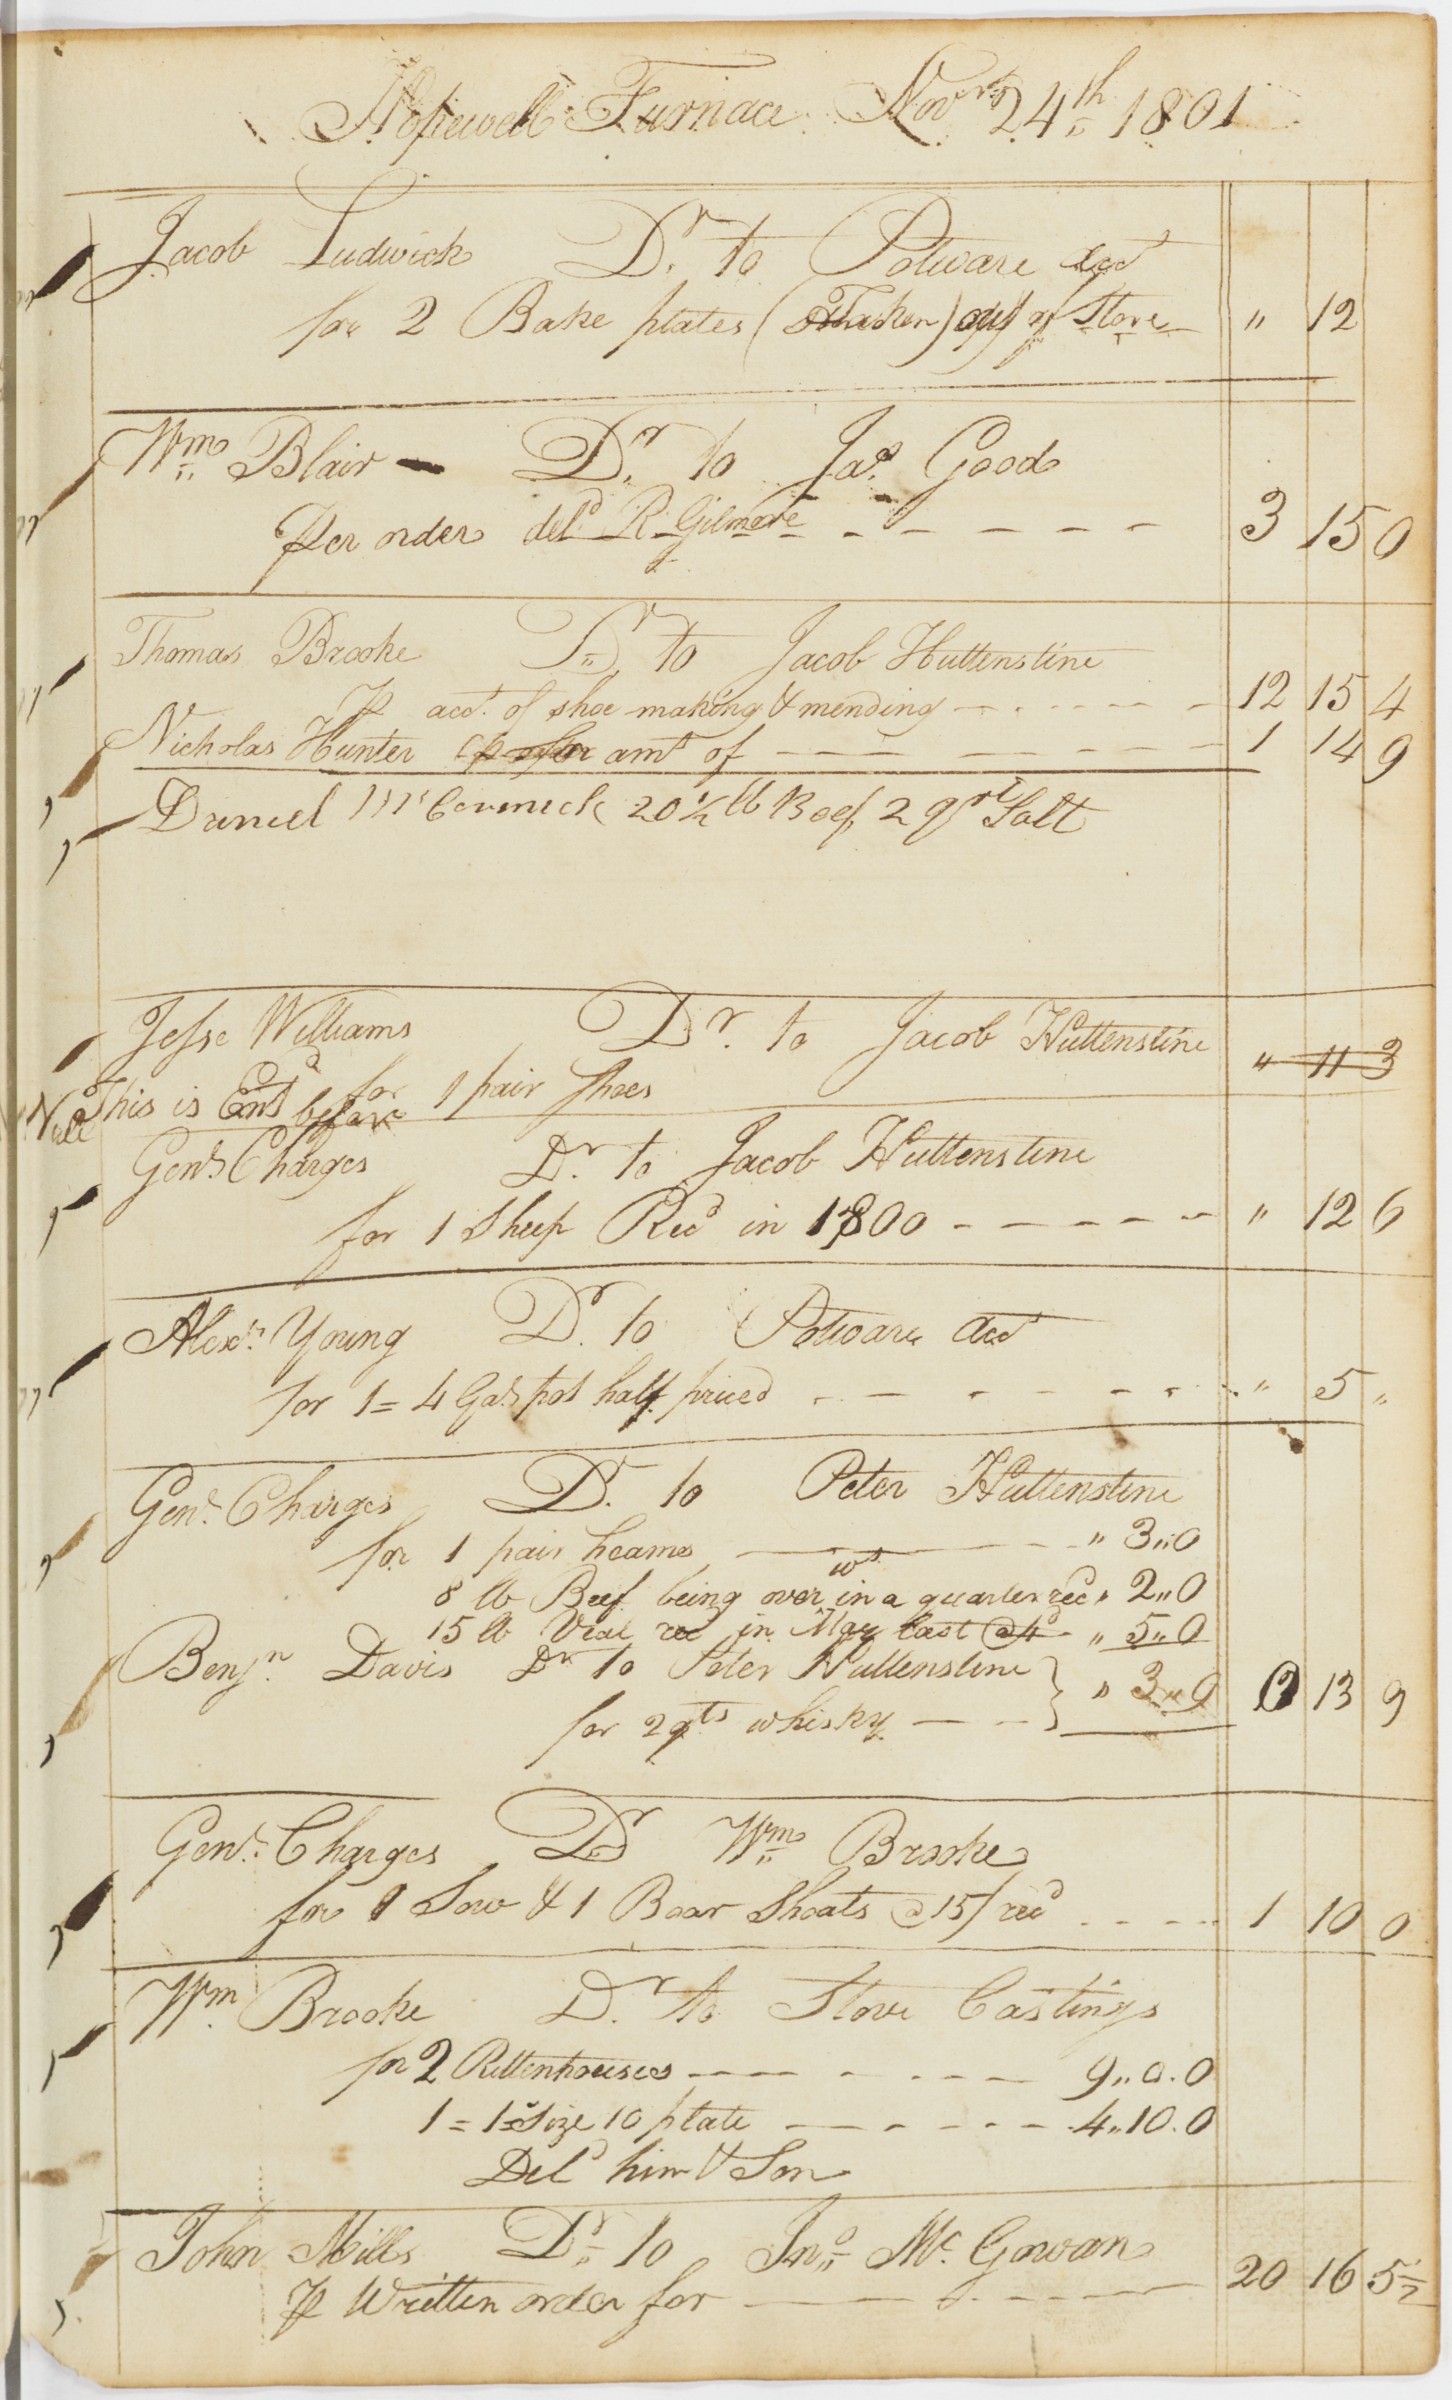 Hopewell Furnace Novr 24th 1801
Jacob Ludwick Dr to Potware acct
for 2 Bake plates (Taken) out of Stove " 12
Wm Blair Dr to Jas Good
Per order deld R Gilmore 3 15 0
Thomas Brooke Dr to Jacob Huttenstine
P acct. of shoe making & mending 12 15 4
Nicholas Hunter amt of 1 14 9
Daniel McCormick 20 1/2 lb Beef, 2 qrt Salt
Jesse Williams Dr to Jacob Huttenstine " 11 3
for 1 pair shoes
Note This is Entd before
Genl Charges Dr to Jacob Huttenstine
for 1 Sheep Recd in 1800 " 12 6
Alexr Young Dr to Potware acct
for 1 = 4 Gal pot half priced " 5 "
Genl Charges Dr to Peter Huttenstine
for 1 pair heams " 3 " 0
8 lb Beef being over wt in a quarter recd " 2 " 0
15 lb Veal recd in May last @ 4d " 5 " 0
Benjn Davis Dr to Peter Huttenstine
for 2 qts whisky } " 3 " 9 0 13 9
Genl Charges Dr Wm Brooke
for 1 Sow & 1 Boar Shoats @ 15/ recd 1 10 0
Wm Brooke Dr to Stove Castings
for 2 Rittenhouses 9 " 0 . 0
1 = 1st Size 10 plate 4 " 10 . 0
Deld him & Son
John Mills Dr to Jno Mc Gowan
P Written order for 20 16 5 1/2